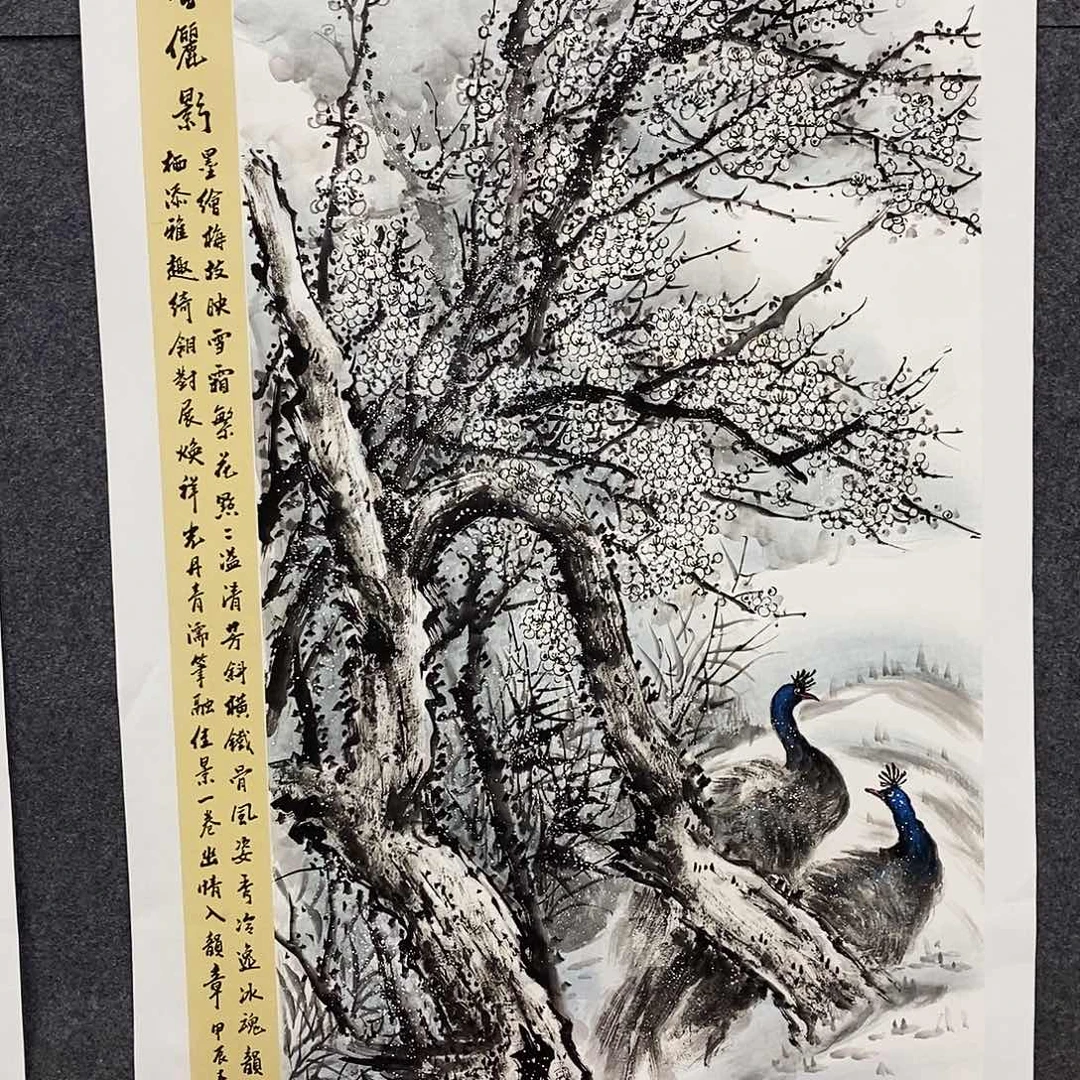 儷影
墨繪梅枝映雪霜繁花點〻溢清芳斜橫鐵骨風姿秀冷逸冰魂韻
栖添雅趣綺翎對展煥祥光丹青濡筆融佳景一卷幽情入韻章甲辰